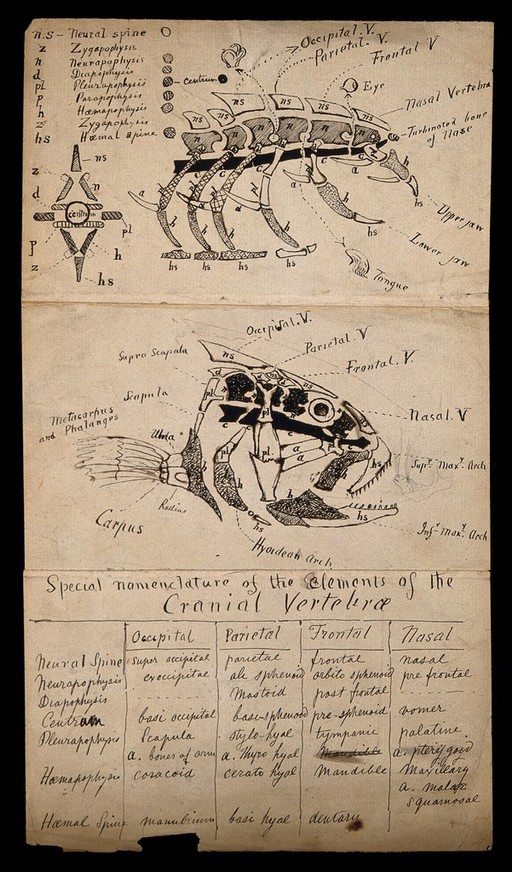 n.s – Neural spine
z Zygapophysis
n Neurapophysis
d Diapophysis
pl Pleurapophysis
p Parapophysis
h Hæmapophysis
z Zygapophysis
hs Hæmal spine
centrum
Occipital. V.
Parietal. V.
Frontal V
Eye
Nasal Vertebra
Turbinated bone
of Nose
ns
ns
ns
ns
n
n
n
n
c
c
c
a
a
d
h
h
h
h
h
h
hs
hs
hs
hs
hs
hs
Upper jaw
Lower jaw
Tongue
ns
z
n
d
centrum
p
pl
z
h
hs
Occipital. V.
Parietal. V
Frontal. V.
Supra Scapula
Scapula
Metacarpus
and Phalanges
Ulna
Radius
Carpus
Nasal. V
Supr. Maxy. Arch
Infr. Max. Arch
Hyoidean arch
ns
ns
d
pl
p
c
c
c
pl
pl
a
a
h
h
h
h
hs
hs
hs
Special nomenclature of the Elements of the
Cranial Vertebræ
Occipital Parietal Frontal Nasal
Neural Spine super occipital parietal frontal nasal
Neurapophysis exoccipital ale sphenoid orbito sphenoid pre frontal
Diapophysis Mastoid post frontal
Centrum basi occipital basi-sphenoid pre-sphenoid vomer
Pleurapophysis Scapula stylo-hyal tympanic palatine
a. bones of arm a. thyro hyal Mandible a. pterygoid
Hæmapophysis coracoid cerato hyal Mandible Maxillary
a. malar
squamosal
Hæmal Spine manubrium basi hyal dentary